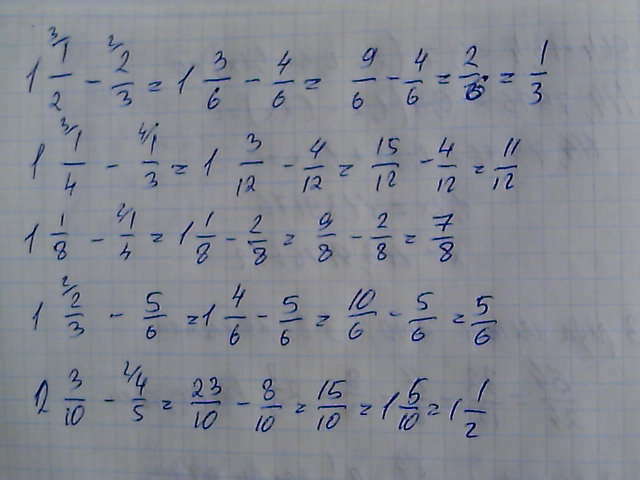 1 ³⁾1/2 - ²⁾2/3 = 1 3/6 - 4/6 = 9/6 - 4/6 = 2/6 = 1/3
1 ³⁾1/4 - ⁴⁾1/3 = 1 3/12 - 4/12 = 15/12 - 4/12 = 11/12
1 1/8 - ²⁾1/4 = 1 1/8 - 2/8 = 9/8 - 2/8 = 7/8
1 ²⁾2/3 - 5/6 = 1 4/6 - 5/6 = 10/6 - 5/6 = 5/6
2 3/10 - ²⁾4/5 = 23/10 - 8/10 = 15/10 = 1 5/10 = 1 1/2